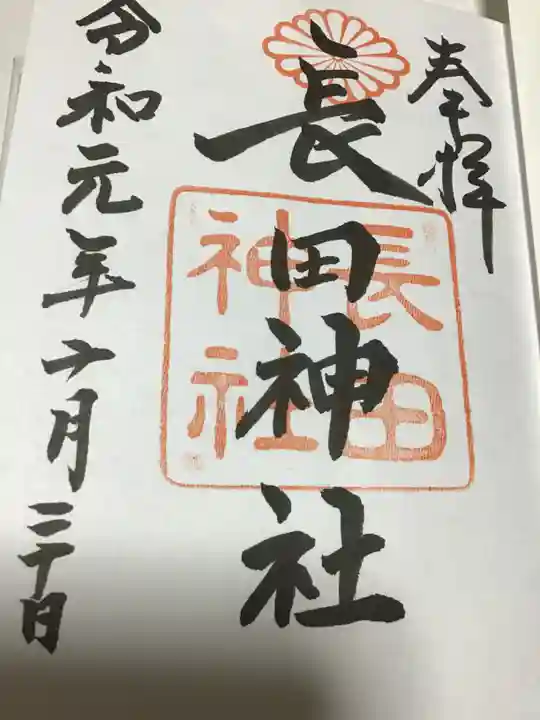 奉拝
長田神社
長田
神社
令和元年六月二十日